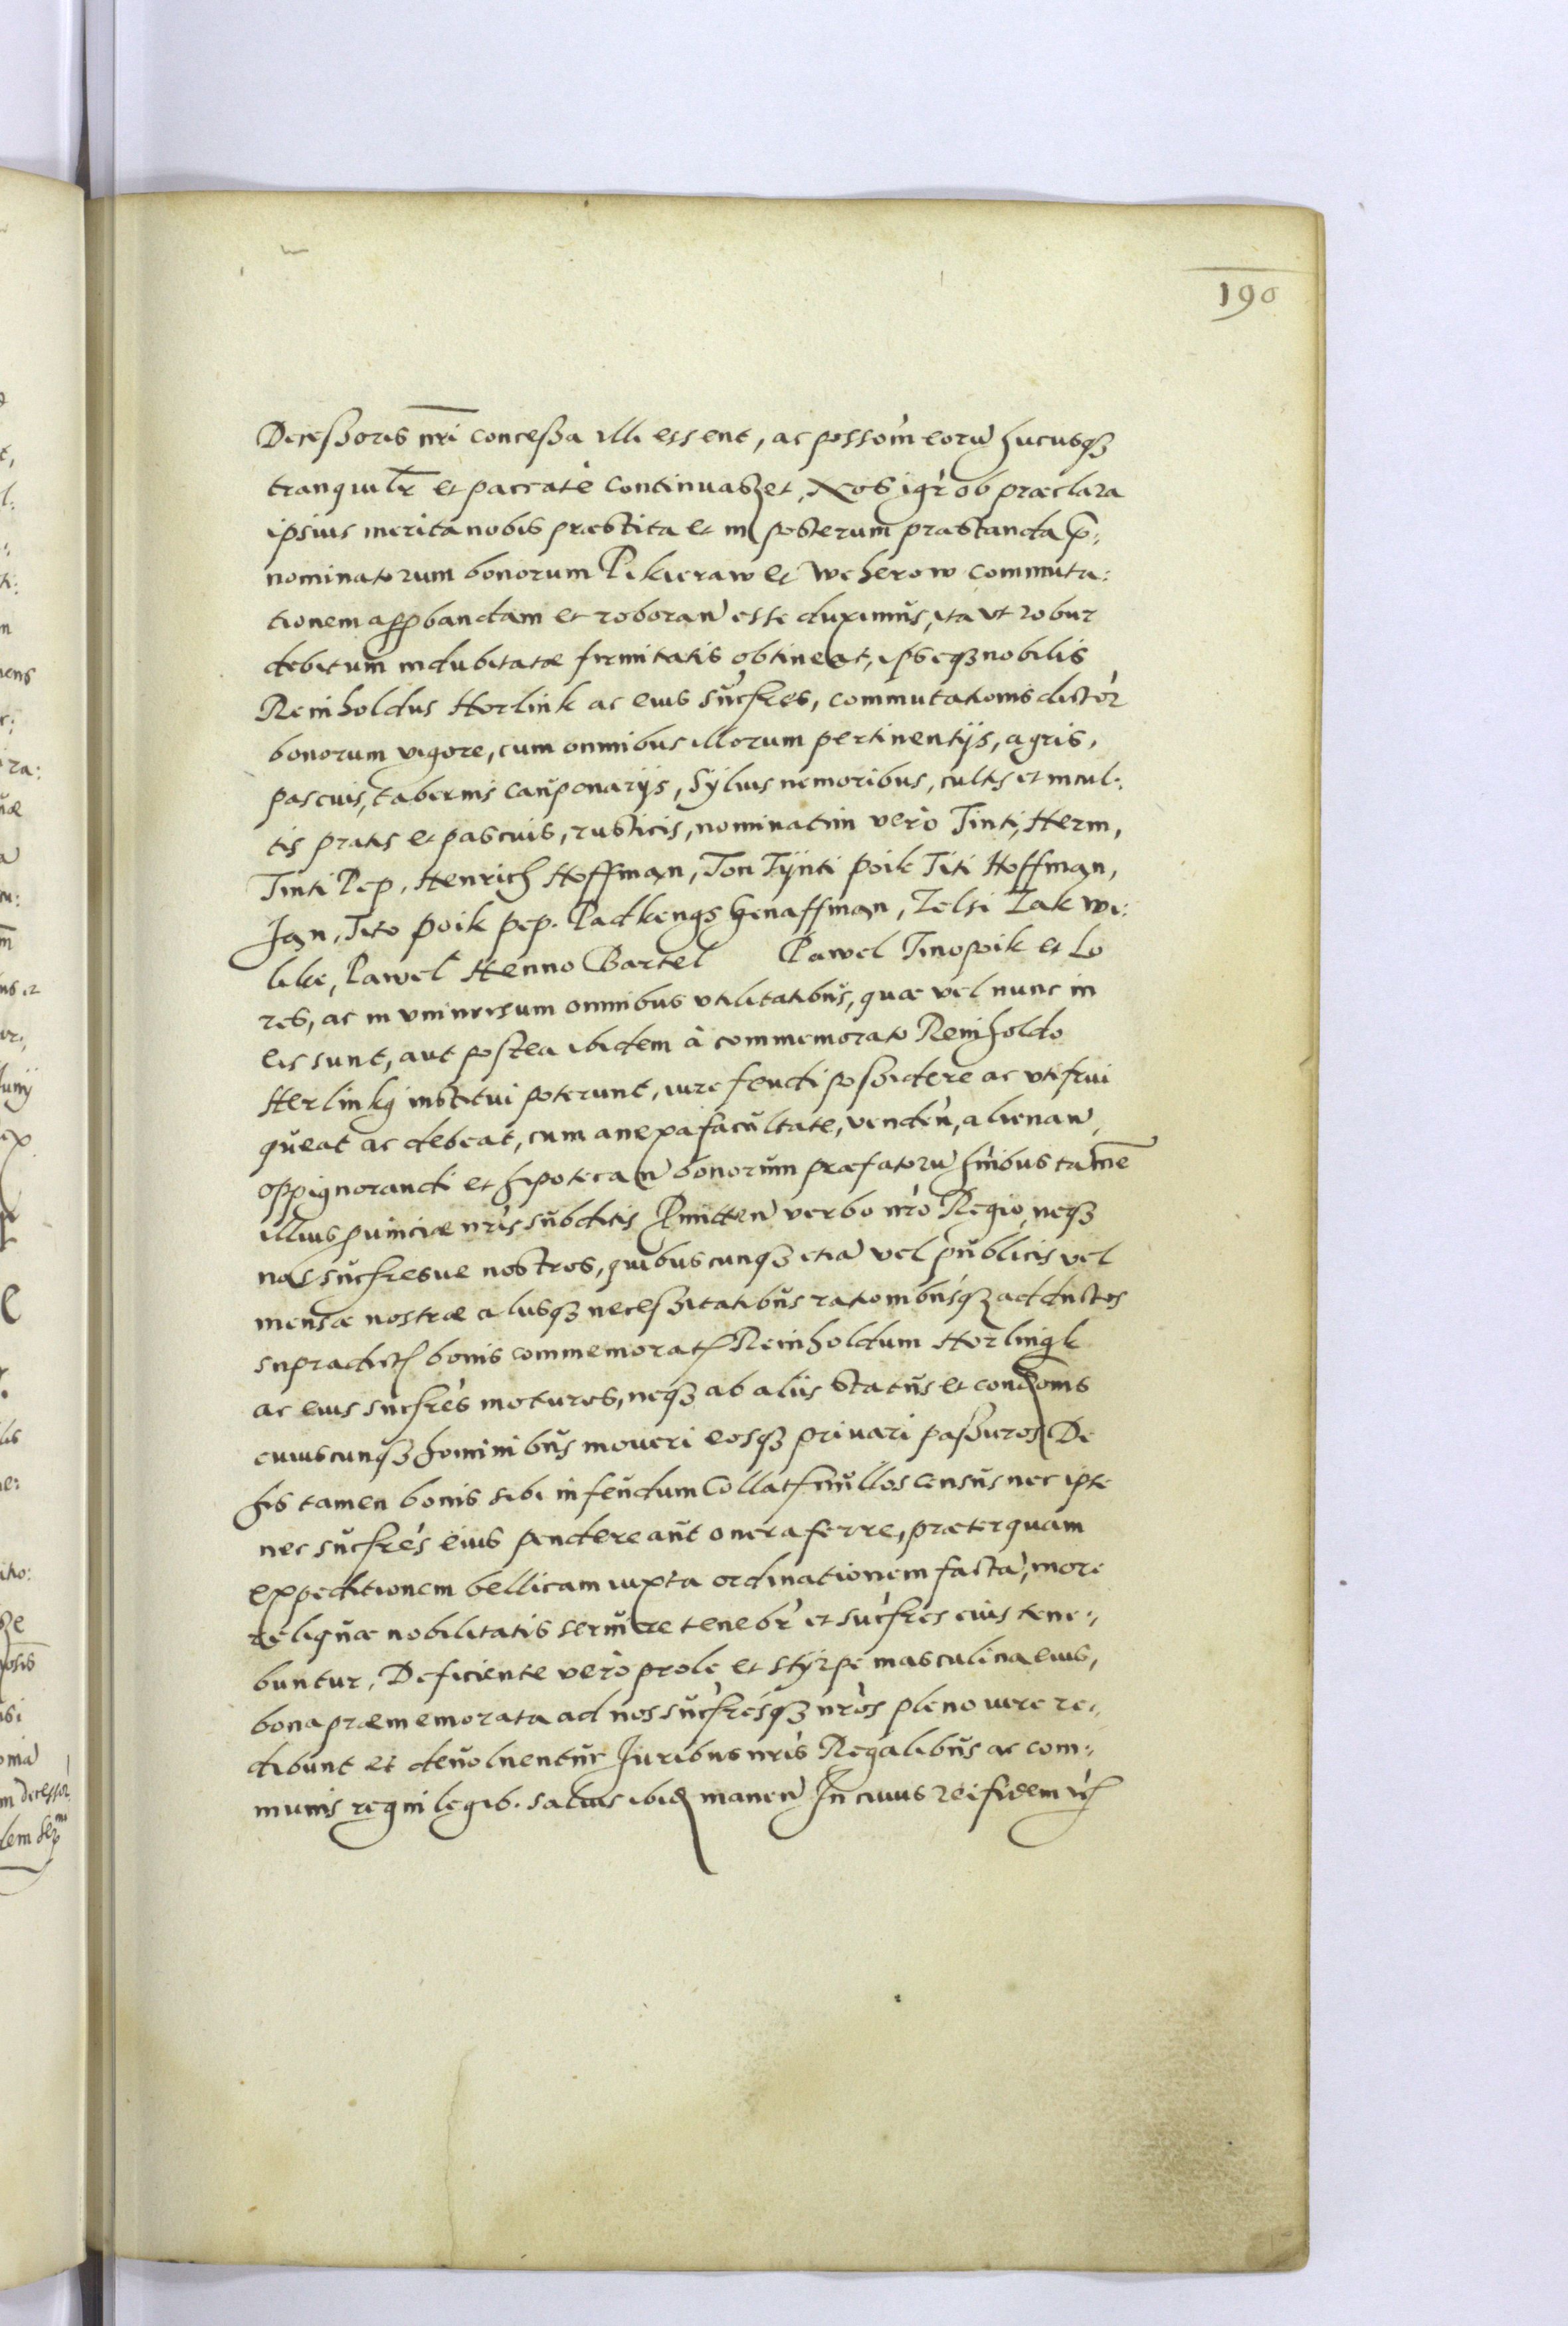 190
Decessoris nri concessa illi essent, ac possom eoru hucusq3
tranquillr et paccate continuasset, Nos igr ob præclara
ipsius merita nobis præstita et in posterum præstanda p:
nominatorum bonorum Pikieraw et Weherow commuta:
tionem apprbandam et roboran esse duximus, ita vt robur
debitum indubitatæ firmitatis obtineat, ipseq3 nobilis
Reinholdus Horlink ac eius sucsres, commutationis dictor
bonorum vigore, cum omnibus illorum pertinentijs, agris,
pascuis, tabernis cauponarijs, Syluis nemoribus, cultis et incul:
tis pratis et pascuis, rusticis, nominatim vero Tinti, Herm,
Tinti Pep, Henrich Hoffman, Ton Tÿnti poik Titi Hoffman,
Jan, Tito poik pep. Padkengs Henaffman, Zelsi Zak we:
like, Pawel Henno Bartel Pawel Tinopoik et Lo
res, ac in vniuersum omnibus vtilitatibus, quæ vel nunc in
eis sunt, aut postea ibidem à commemorato Reinholdo
Herlinkg institui poterunt, iure feudi possidere ac vtifrui
queat ac debeat, cum anexa facultate, venden, alienan,
oppignorandi et hipotecan bonorum præfatoru hnibus tamē
illius puinciæ nris subditis Pmitten verbo nro Regio, neq3
nos sucsresue nostros, quibuscunq3 etia vel publicis vel
mensæ nostræ aliusq3 necessitatibus rationibusq3 adductos
supradict bonis commemorat Reinholdum Horlingk
ac eius sucsres moturos, neq3 ab aliis status et condoms
cuiuscunq3 hominibus moueri eosq3 priuari passuros De
his tamen bonis sibi in feudum Collat nullos census nec ipse
nec sucsres eius pendere aut onera ferre, præterquam
expeditionem bellicam iuxta ordinationem facta, more
reliquæ nobilitatis seruire tenebr et sucsres eius tene:
buntur, Deficiente vero prole et styrpe masculina eius,
bona præmemorata ad nos sucsresq3 nros pleno iure re:
dibunt et deuoluentur Juribus nris Regalibus ac com:
munis regni legib. saluis ibid manen In cuius rei fidem